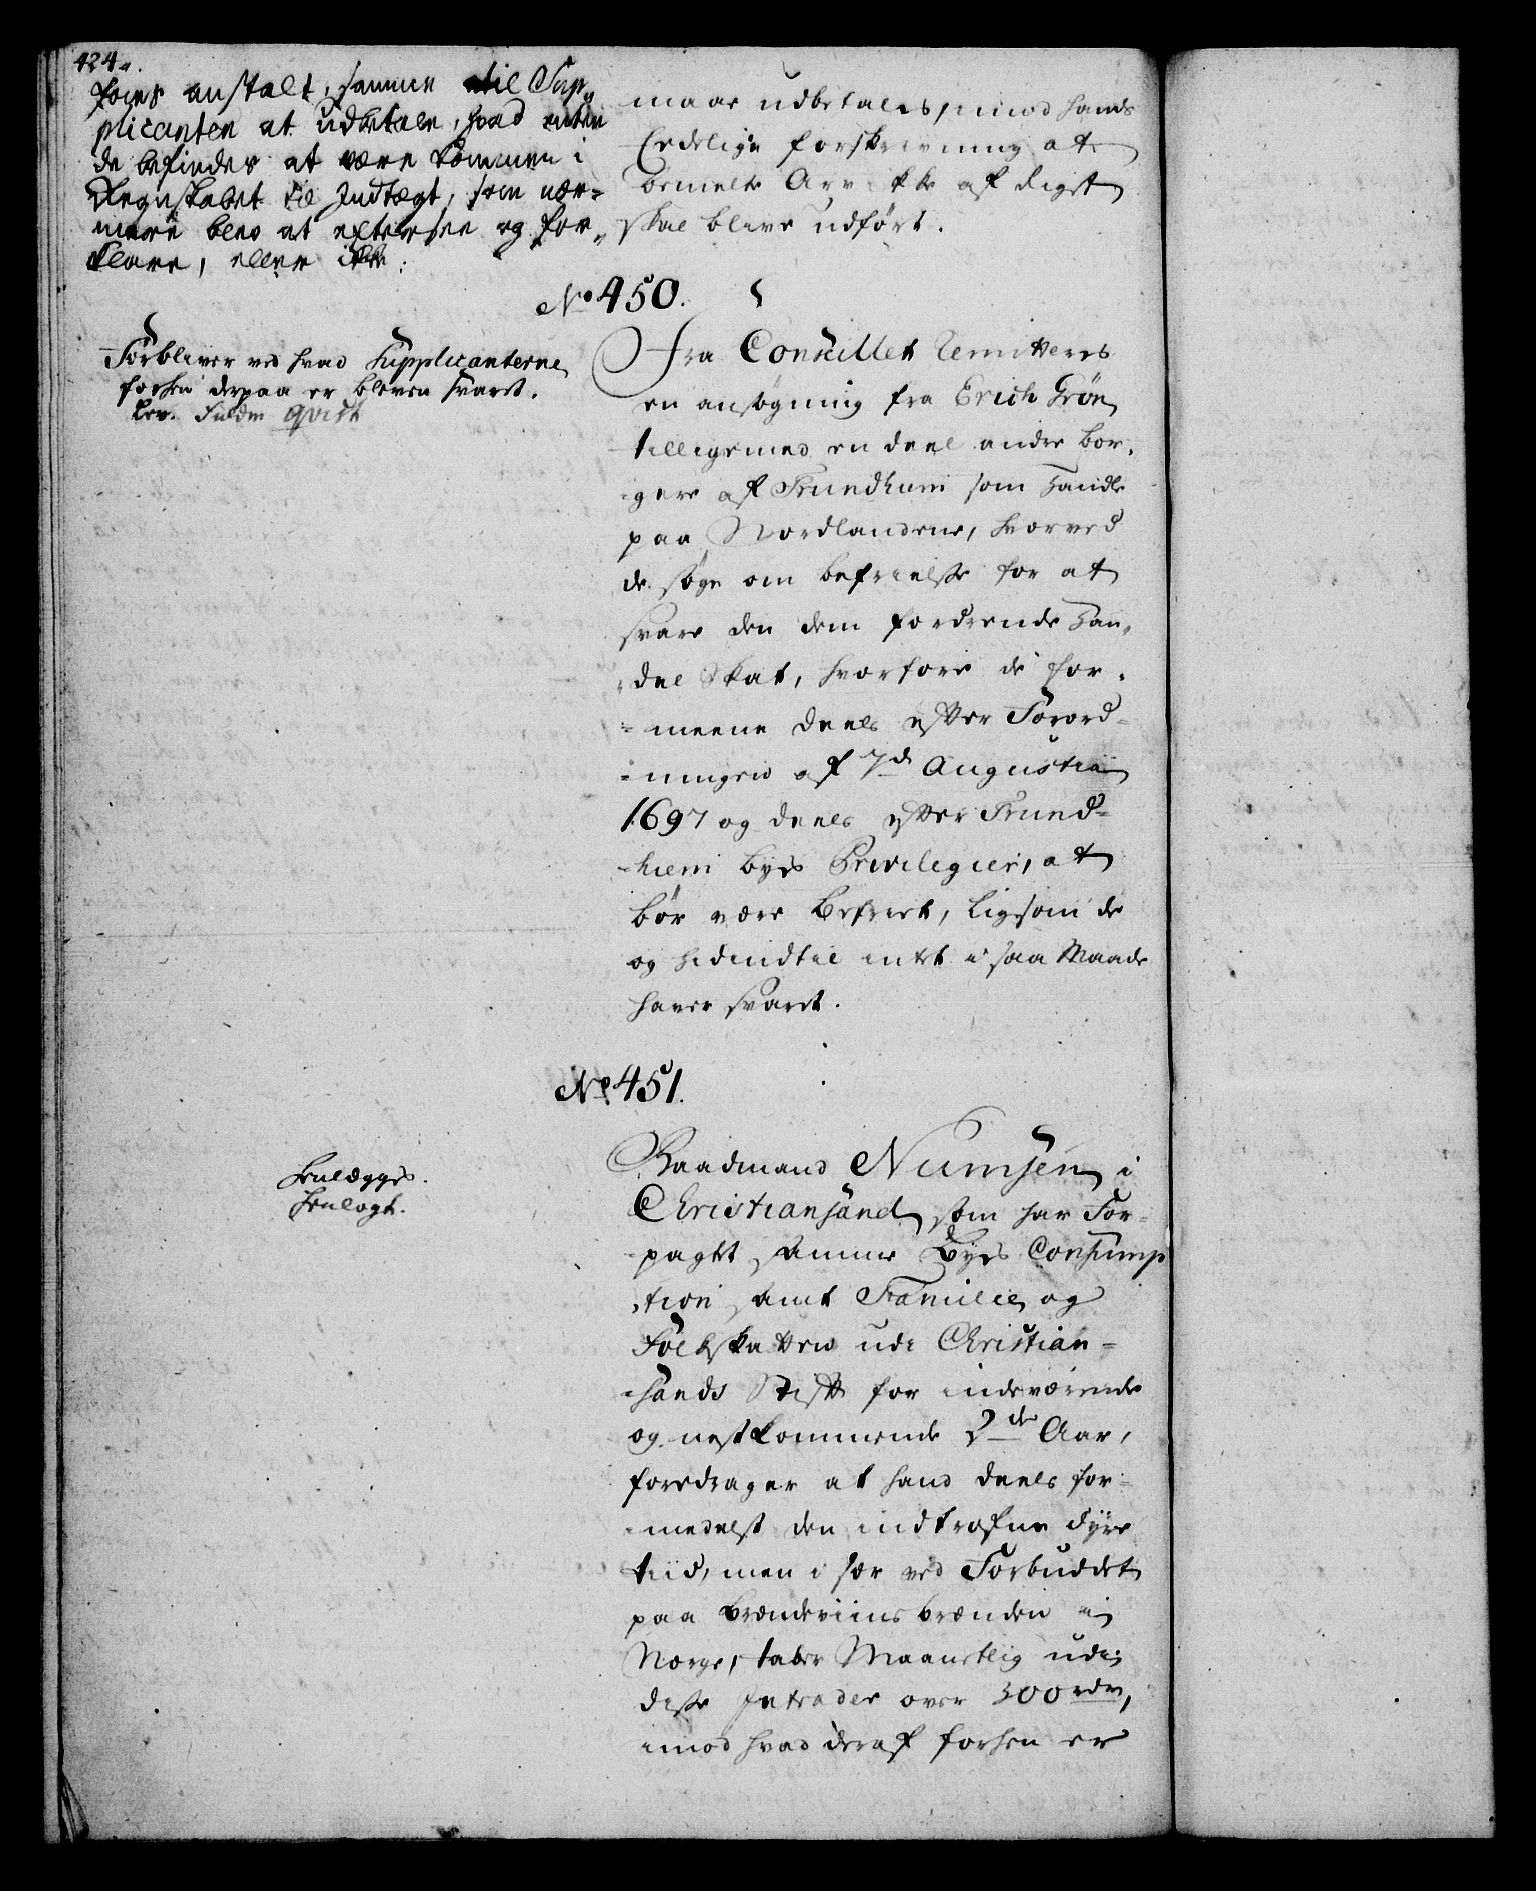 424.
føies anstalt, samme til Sup-
plicanten at udbetale, hvad enten
de befindes at være kommen i
Regnskabet til Indtægt, som nær-
mere blev at eftersee og for-
klare, eller ikke.
maae udbetales, imod hands
Eedelige forskrivning at
bemelte Arv ikke af Riget
skal blive udført.
No 450.
Forbliver ved hvad Supplicanterne
forhen derpaa er bleven svaret.
Lev. Fuldm Qvist
Fra Conseillet Remitteres
en ansøgning fra Erich Grøn
tilligemed en deel andre Bor-
gere af Trundhiem som handle
paa Nordlandene, hvorved
de søge om befrielse for at
svare den dem fordrende Han-
del Skat, hvorfore de for-
meene deels efter Forord-
ningen af 7d Augustii
1697 og deels efter Trund-
hiem Byes Privilegier, at
bør være befriet, ligesom de
og hidindtil intet i saa Maade
haver svaret.
No 451.
Henlægges.
Henlagt.
Raadmand Numsen i
Christiansand som har For-
pagtet samme Byes Consump
tion samt Familie og
Folkskatten udi Christian-
sands Stift for indeværende
og nestkommende 2de Aar,
foredrager at hand deels for-
medelst den indtrofne dyre
tiid, men i sær ved Forbuddet
paa brændeviins brænden i
Norge, taber Maanetlig udi
disse Intrader over 300 rdr,
imod hvad deraf forhen er